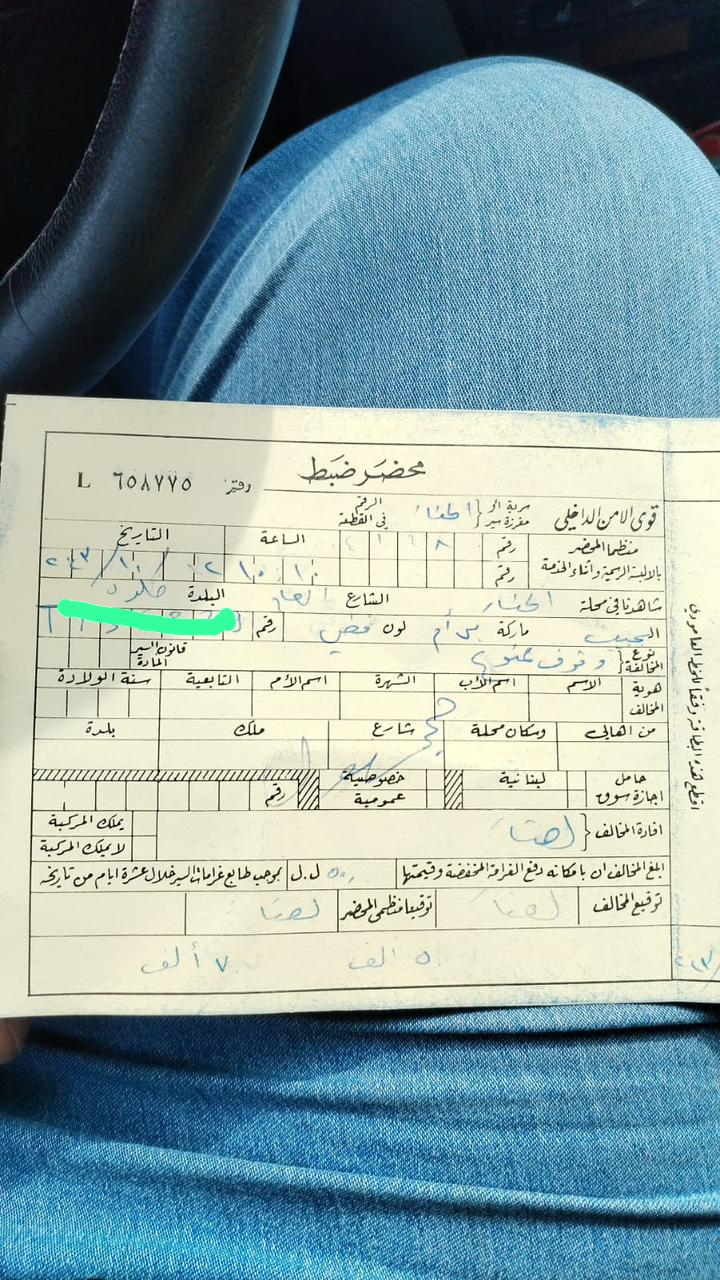 محضر ضبط
دفتر ٦٥٨٧٧٥ L
قوى الامن الداخلي
سرية الـ
مفرزة سير
الرقم
في القطعة
منظما المحضر
بالالبسة الرسمية واثناء الخدمة
رقم
رقم
الساعة
التاريخ
شاهدنا في محلة
الشارع العام
البلدة
الـ جيب
ماركة
لون فضي
رقم
نوع المخالفة
وقوف ممنوع
قانون السير
المادة
هوية المخالف
الاسم
اسم الأب
الشهرة
اسم الأم
التابعية
سنة الولادة
من اهالي
وسكان محلة
شارع
ملك
بلدة
حامل
اجازة سوق
لبنانية
خصوصية
عمومية
رقم
افادة المخالف
يملك المركبة
لا يملك المركبة
ابلغ المخالف ان بامكانه دفع الغرامة المخفضة وقيمتها
ل.ل
بموجب طابع غرامات السير خلال عشرة ايام من تاريخه
توقيع المخالف
توقيع منظمي المحضر
٥٠ الف
٧٠ ألف
اقطع هذه البطاقة وفقاً للخط العامودي